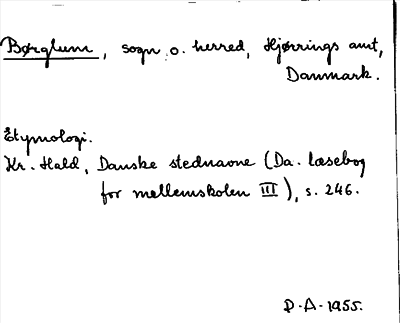 Børglum, sogn o. herred, Hjørrings amt,
Danmark.
Etymologi.
Kr. Hald, Danske stednavne (Da. læsebog
for mellemskolen III), s. 246.
D.A. 1955.